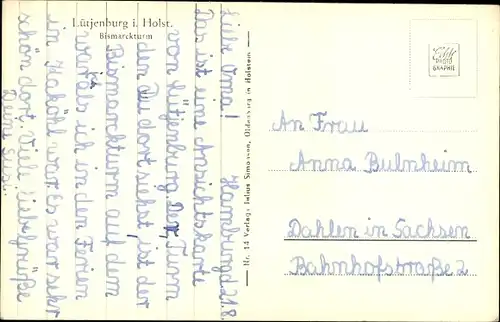 Lütjenburg i. Holst.
Bismarckturm
Hamburg d. 21. 8.
Liebe Oma!
Das ist eine Ansichtskarte
von Lütjenburg. Der Turm
den Du dort siehst, ist der
Bismarckturm auf dem
war ich als ich in den Ferien
in Haköhl war. Es war sehr
schön dort. Viele liebe Grüße
Deine Susi.
Nr. 14 Verlag: Julius Simonsen, Oldenburg in Holstein
Echte
PHOTO
GRAPHIE
An Frau
Anna Bulnheim
Dahlen in Sachsen
Bahnhofstraße 2